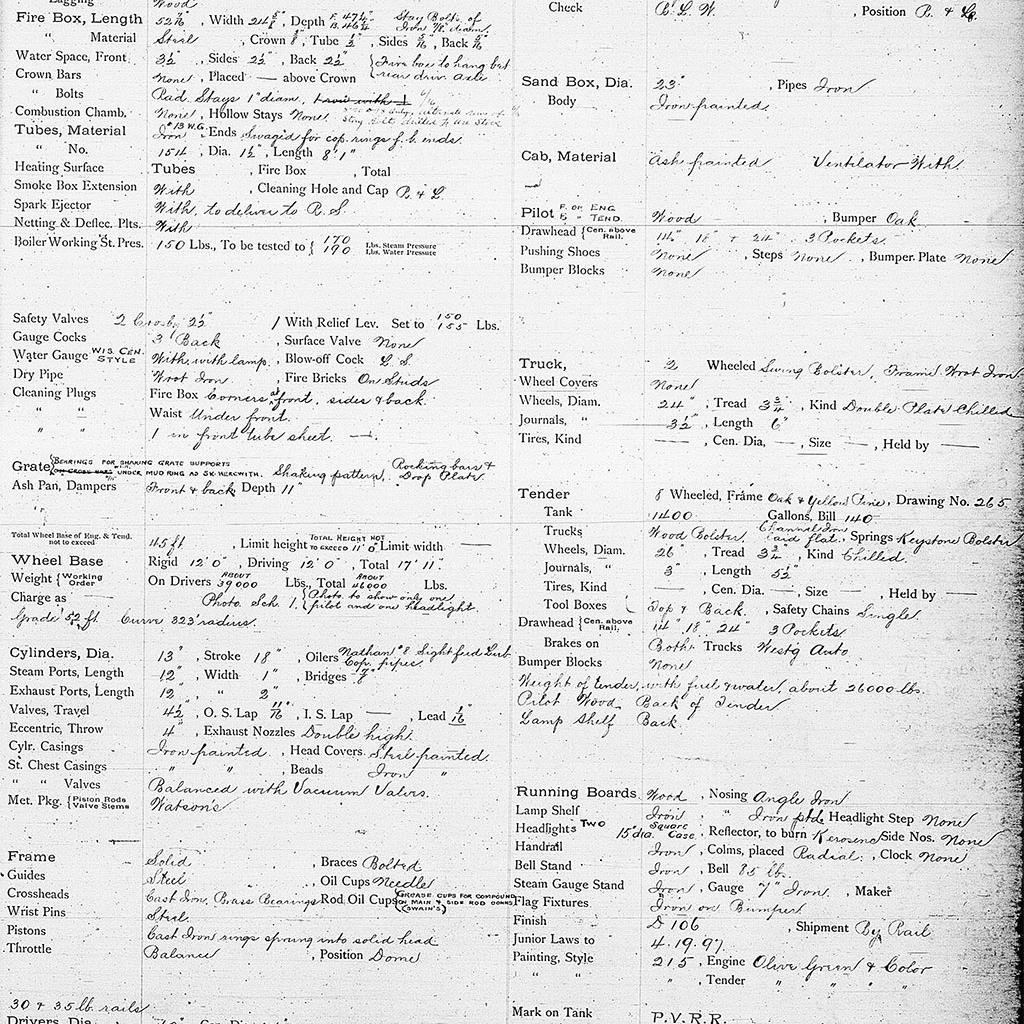 Lagging Wood
Fire Box, Length 52 7/16", Width 24 5/8", Depth F. 47 1/4" B. 46 1/4" Stay Bolts, of Iron 7/8" diam.
" Material Steel, Crown 3/8", Tube 1/2", Sides 5/16", Back 5/16"
Water Space, Front 3 1/2", Sides 2 1/2", Back 2 1/2" { Fire box to hang bet rear driv. axle
Crown Bars None, Placed — above Crown
" Bolts Rad. Stays 1" diam.
Combustion Chamb. None, Hollow Stays None
Tubes, Material Iron #13 W.G., Ends Swaged for cop. rings f. b. ends.
" No. 154, Dia. 1 1/2", Length 8' 1"
Heating Surface Tubes , Fire Box , Total
Smoke Box Extension With , Cleaning Hole and Cap R. & L.
Spark Ejector With, to deliver to R. S.
Netting & Deflec. Plts. With
Boiler Working St. Pres. 150 Lbs., To be tested to { 170 Lbs. Steam Pressure 190 Lbs. Water Pressure
Safety Valves 2 Crosby 2 1/2" / With Relief Lev. Set to 150 155 Lbs.
Gauge Cocks 3 Back , Surface Valve None
Water Gauge WIS. CEN. STYLE With, with lamp, Blow-off Cock L. S.
Dry Pipe Wrot Iron , Fire Bricks On Studs
Cleaning Plugs Fire Box Corners at front, sides & back.
" " Waist Under front.
" " 1 in front tube sheet. —
Grate { BEARINGS FOR SHAKING GRATE SUPPORTS UNDER MUD RING AS SK. HEREWITH. Shaking pattern, Rocking bars & Drop Plate
Ash Pan, Dampers Front & back, Depth 11"
Total Wheel Base of Eng. & Tend. not to exceed 45 ft , Limit height TOTAL HEIGHT NOT TO EXCEED 11' 0" Limit width —
Wheel Base Rigid 12' 0", Driving 12' 0", Total 17' 11"
Weight { Working Order On Drivers ABOUT 39000 Lbs., Total ABOUT 46000 Lbs.
Charge as Photo. Sch. 1. { Photo. to show only one pilot and one headlight.
Grade 52 ft Curve 323' radius.
Cylinders, Dia. 13", Stroke 18", Oilers Nathan #8 Sight feed Lub. Cop. pipes
Steam Ports, Length 12", Width 1", Bridges 7/8"
Exhaust Ports, Length 12", " 2"
Valves, Travel 4 1/2", O. S. Lap 11/16", I. S. Lap —, Lead 1/16"
Eccentric, Throw 4", Exhaust Nozzles Double high.
Cylr. Casings Iron painted , Head Covers Steel painted.
St. Chest Casings " " , Beads Iron "
" " Valves Balanced with Vacuum Valves.
Met. Pkg. { Piston Rods Valve Stems Watson's
Frame Solid , Braces Bolted
Guides Steel , Oil Cups Needle
Crossheads Cast Iron, Brass Bearings Rod Oil Cups { GREASE CUPS FOR COMPOUND ON MAIN & SIDE ROD CONNS. (SWAIN'S)
Wrist Pins Steel
Pistons Cast Iron rings sprung into solid head
Throttle Balance , Position Dome
30 & 35 lb. rails
Drivers, Dia.
Check B. L. W. , Position R. & L.
Sand Box, Dia. 23" , Pipes Iron
Body Iron painted.
Cab, Material Ash painted Ventilator With.
Pilot F. OF ENG. B. " TEND. Wood , Bumper Oak
Drawhead { Cen. above Rail. 14" 18" & 24" 3 Pockets.
Pushing Shoes None , Steps None , Bumper Plate None
Bumper Blocks None
Truck, 2 Wheeled Swing Bolster, Frame Wrot Iron
Wheel Covers None
Wheels, Diam. 24", Tread 3 3/4", Kind Double Plate Chilled
Journals, " 3 1/2", Length 6"
Tires, Kind —, Cen. Dia. —, Size —, Held by —
Tender 8 Wheeled, Frame Oak & Yellow Pine, Drawing No. 265
Tank 1400 Gallons, Bill 140
Trucks Wood Bolster. Channel Iron laid flat., Springs Keystone Bolster
Wheels, Diam. 26", Tread 3 3/4", Kind Chilled.
Journals, " 3", Length 5 1/2"
Tires, Kind —, Cen. Dia. —, Size —, Held by —
Tool Boxes Top & Back. , Safety Chains Single
Drawhead { Cen. above Rail. 14" 18" 24" 3 Pockets
Brakes on Both Trucks Westg Auto
Bumper Blocks None
Weight of tender, with fuel & water, about 26000 lbs.
Pilot Wood Back of Tender
Lamp Shelf Back
Running Boards Wood , Nosing Angle Iron
Lamp Shelf Iron , " Iron ptd. Headlight Step None
Headlights Two 15" dia. Square Case, Reflector, to burn Kerosene Side Nos. None
Handrail Iron , Colms, placed Radial , Clock None
Bell Stand Iron , Bell 85 lb.
Steam Gauge Stand Iron , Gauge 7" Iron , Maker
Flag Fixtures Iron on Bumper
Finish D 106 , Shipment By Rail
Junior Laws to 4.19.97.
Painting, Style 215 , Engine Olive Green & Color
" " " , Tender " " "
Mark on Tank P.V.R.R.